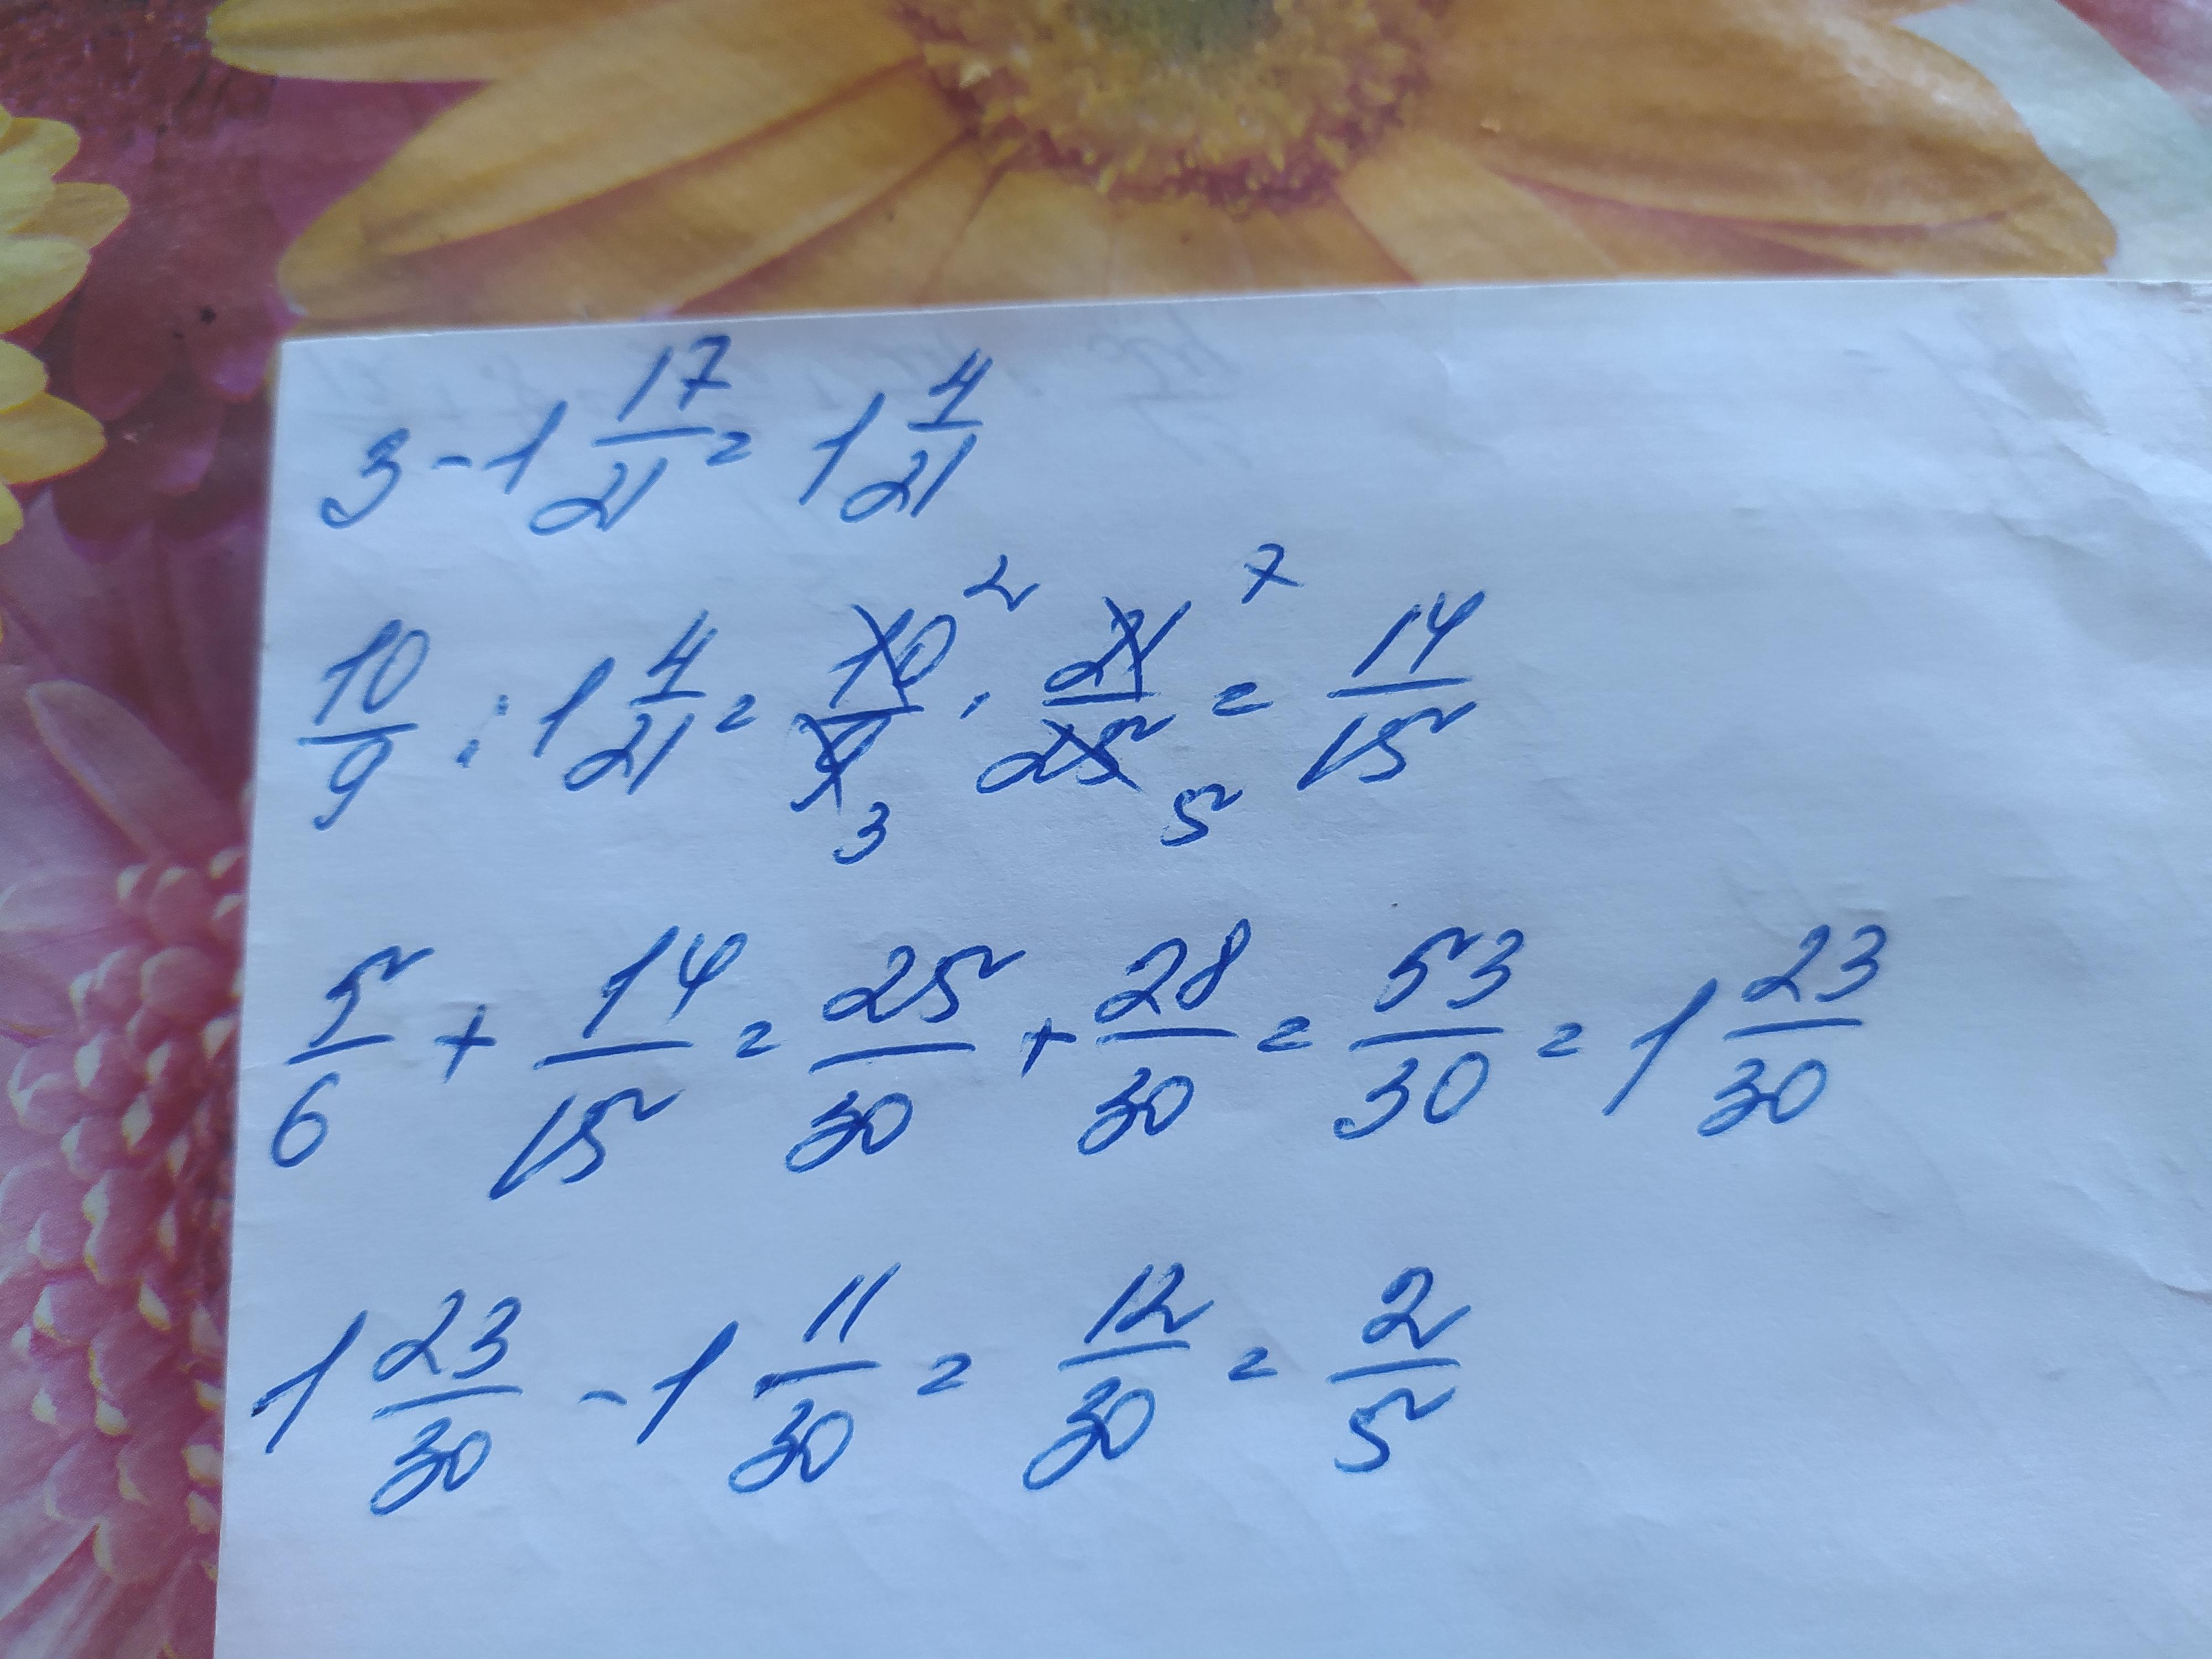 3 - 1 17/21 = 1 4/21
10/9 : 1 4/21 = 10/9 2 3 · 21/25 7 5 = 14/15
5/6 + 14/15 = 25/30 + 28/30 = 53/30 = 1 23/30
1 23/30 - 1 11/30 = 12/30 = 2/5